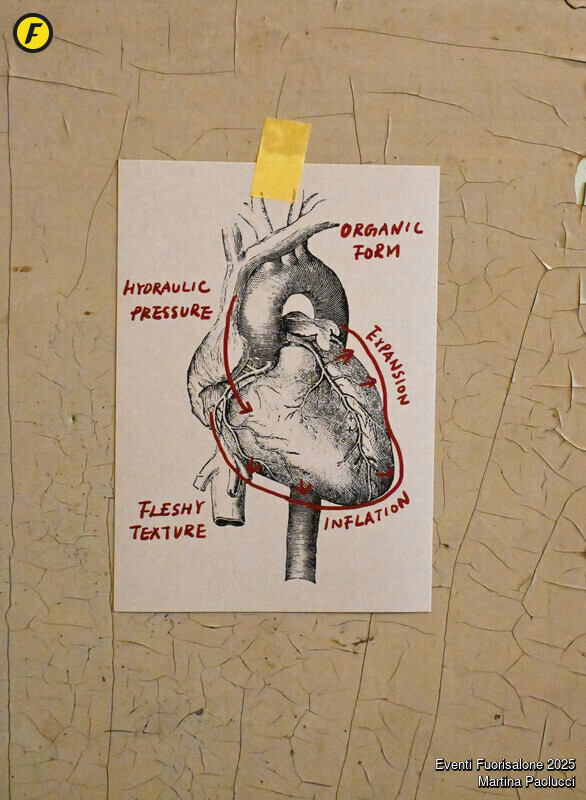 F
ORGANIC
FORM
HYDRAULIC
PRESSURE
EXPANSION
FLESHY
TEXTURE
INFLATION
Eventi Fuorisalone 2025
Martina Paolucci